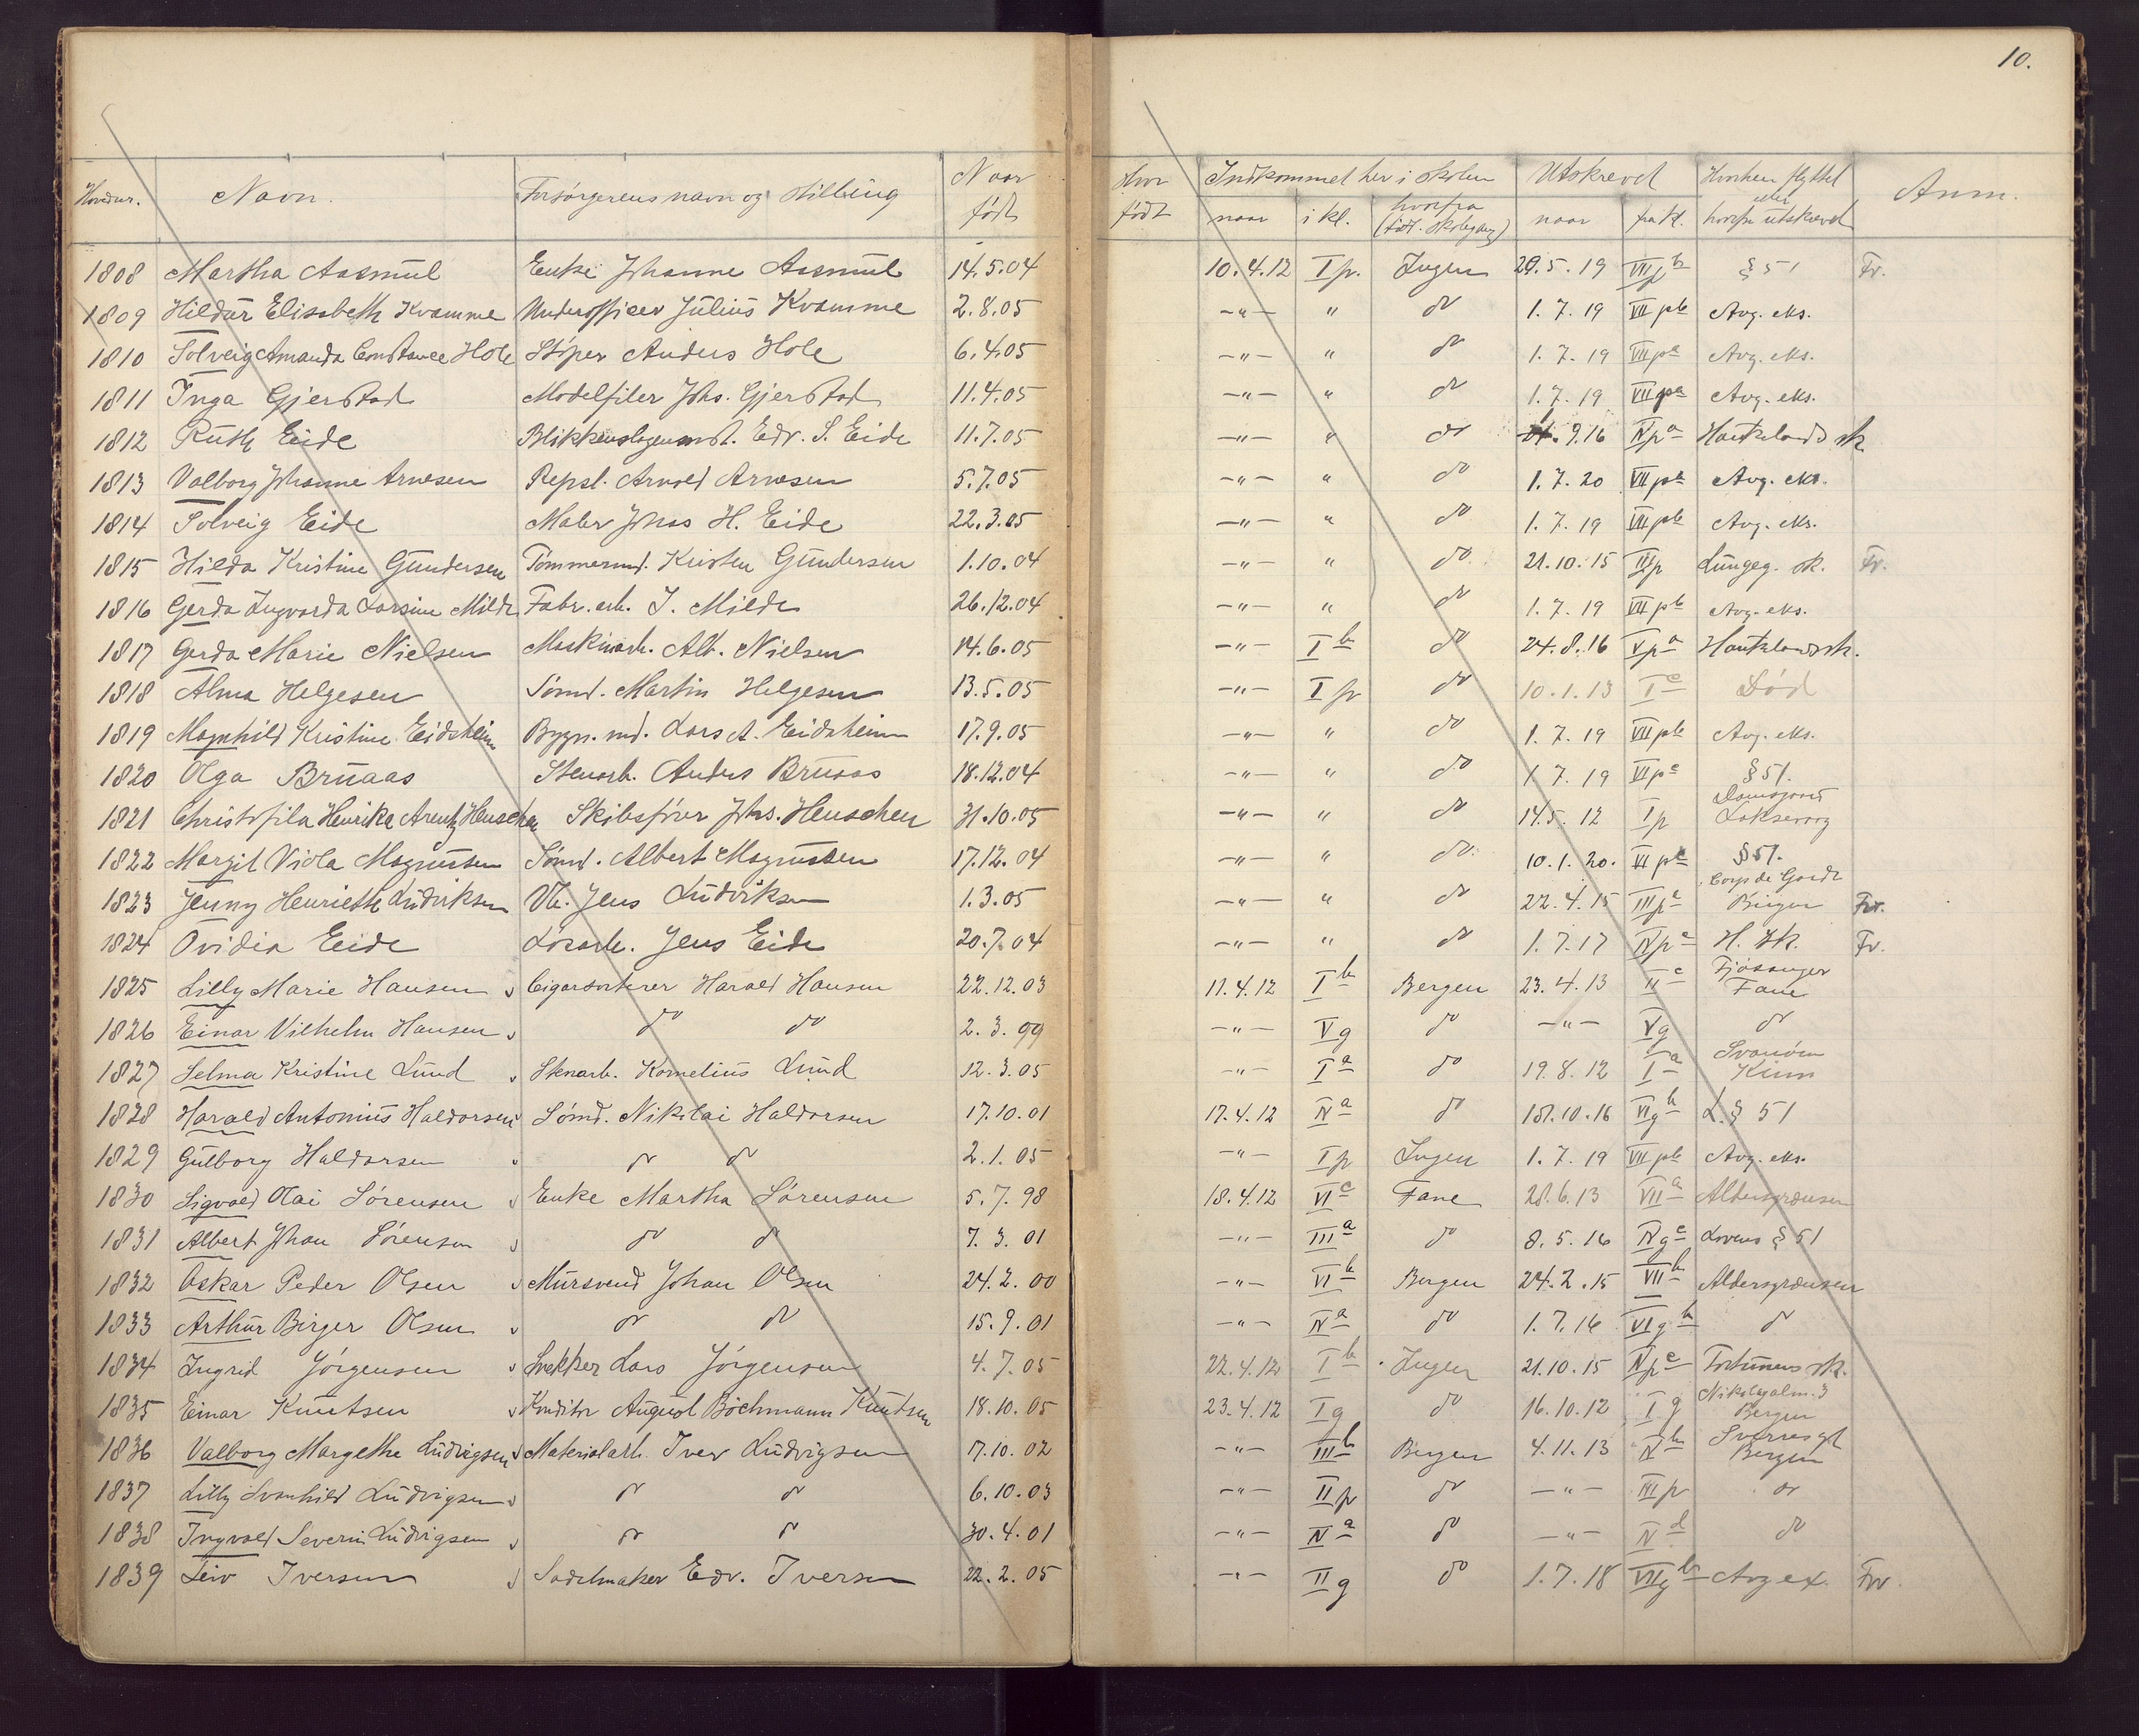 10.
Hovednr. Navn. Forsørgerens navn og stilling Naar født Hvor født Indkommet her i skolen Utskrevet Hvorhen flyttet eller hvorfor utskrevet Anm.
naar i kl. hvorfra (tidl. skolegang) naar fra kl.
1808 Martha Aasmul Enke Johanne Aasmul 14.5.04 10.4.12 I p. Ingen 29.5.19 VII p b § 51 Fr.
1809 Hildur Elisabeth Kvamme Underofficer Julius Kvamme 2.8.05 -"- " do 1.7.19 VII pb Avg. eks.
1810 Solveig Amanda Constance Hole Støper Anders Hole 6.4.05 -"- " do 1.7.19 VII pa Avg. eks.
1811 Inga Gjerstad Modelfiler Johs. Gjerstad 11.4.05 -"- " do 1.7.19 VII pa Avg. eks.
1812 Ruth Eide Blikkenslagermst. Edv. S. Eide 11.7.05 -"- " do 9.16 IV p a Haukelands sk
1813 Valborg Johanne Arnesen Repsl. Arnold Arnesen 5.7.05 -"- " do 1.7.20 VII pa Avg. eks.
1814 Solveig Eide Maler Johas H. Eide 22.3.05 -"- " do 1.7.19 VII pb Avg. eks.
1815 Hilda Kristine Gundersen Tømmermd. Kristen Gundersen 1.10.04 -"- " do 21.10.15 III p Lungeg. sk. Fr.
1816 Gerda Ingvarda Larsine Milde Fabr. arb. I. Milde 26.12.04 -"- " do 1.7.19 VII pb Avg. eks.
1817 Gerda Marie Nielsen Maskinarb. Alb. Nielsen 14.6.05 -"- I b do 24.8.16 V p a Haukelandssk.
1818 Alma Helgesen Sømd. Martin Helgesen 13.5.05 -"- I p do 10.1.13 I c Død
1819 Magnhild Kristine Eidsheim Bygn. md. Lars A. Eidsheim 17.9.05 -"- " do 1.7.19 VII pb Avg. eks.
1820 Olga Bruaas Stenarb. Anders Bruaas 18.12.04 -"- " do 1.7.19 VI p c § 51.
1821 Christofila Henrike Arentz Henschen Skibsfører Johs. Henschen 31.10.05 -"- " do 14.5.12 I p Damsgaard Laksevaag
1822 Margit Viola Magnussen Sømd. Albert Magnussen 17.12.04 -"- " do 10.1.20. VI p c § 51.
1823 Jenny Henriette Ludviksen Vk. Jens Ludviksen 1.3.05 -"- " do 22.4.15 III p c Corps de Garde Bergen Fr.
1824 Ovidia Eide Løsarb. Jens Eide 20.7.04 -"- " do 1.7.17 IV p c H. sk. Fr.
1825 Lilly Marie Hansen Cigarsorterer Harald Hansen 22.12.03 11.4.12 I b Bergen 23.4.13 II c Fjøsanger Fane
1826 Einar Vilhelm Hansen do do 2.3.99 -"- V g do -"- V g do
1827 Selma Kristine Lund Stenarb. Kornelius Lund 12.3.05 -"- I a do 19.8.12 I a Svanøen Kinn
1828 Harald Antonius Haldorsen Sømd. Nikolai Haldorsen 17.10.01 17.4.12 IV a do 10.16 VI g b L. § 51
1829 Gulborg Haldorsen do do 2.1.05 -"- I p Ingen 1.7.19 VII pb Avg. eks.
1830 Sigvald Olai Sørensen Enke Martha Sørensen 5.7.98 18.4.12 VI c Fane 28.6.13 VII a Aldersgrænsen
1831 Albert Johan Sørensen do do 7.3.01 -"- III a do 8.5.16 IV g c Lovens § 51
1832 Oskar Peder Olsen Mursvend Johan Olsen 24.2.00 -"- VI b Bergen 24.2.15 VII b Aldersgrænsen
1833 Arthur Birger Olsen do do 15.9.01 -"- IV a do 1.7.16 VI g b do
1834 Ingrid Jørgensen Snekker Lars Jørgensen 4.7.05 22.4.12 I b Ingen 21.10.15 IV p c Fortunens sk.
1835 Einar Knutsen Konditor August Bøchmann Knutsen 18.10.05 23.4.12 I g do 16.10.12 I g Nikolaialm. 3 Bergen
1836 Valborg Margethe Ludvigsen Materialarb. Iver Ludvigsen 17.10.02 -"- III b Bergen 4.11.13 IV b Sverresgt Bergen
1837 Lilly Svanhild Ludvigsen do do 6.10.03 -"- II p do -"- III p do
1838 Ingvald Severin Ludvigsen do do 30.4.01 -"- IV a do -"- IV d do
1839 Leiv Iversen Sadelmaker Edv. Iversen 22.2.05 -"- II g do 1.7.18 VII g b Avg ex. Frv.